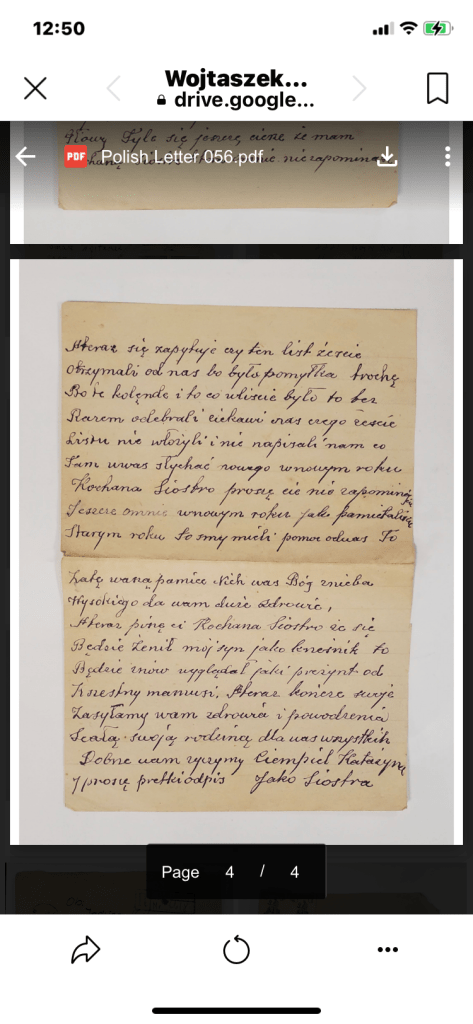 12:50
Wojtaszek...
drive.google...
Nowy Tyle się jeszcze cieszę że mam
PDF Polish Letter 056.pdf
nie zapomina
A teraz się zapytuje czy ten list żeście
Otrzymali od nas bo było pomyłka trochę
Bo te kolęnde i to co w liscie było to tez
Razem odebrali ciekawi nas czego żeście
Listu nie włożyli i nie napisali nam co
Tam uwas słychać nowego wnowym roku
Kochana Siostro proszę cie nie zapominaj
Jeszcze omnie wnowym roku jak
Starym roku to smy mieli pomoc oduas To
Załę waszą pamice Nich was Bóg znieba
Wysokiego da wam duże zdrowie,
A teraz piszę ci Kochana Siostro że się
Będzie żenił mój syn jako krześnik to
Będzie znów wyglądał jaki prezynt od
Krzestny mamusi, A teraz kończe swoje
Zasyłamy wam zdrowia i powodzenia
Scałą swoją rodzinę dla was wszystkich
Dobre wam zyczymy Ciempiel Katarzyna
I proszę prętki odpis Jako Siostra
Page 4 / 4